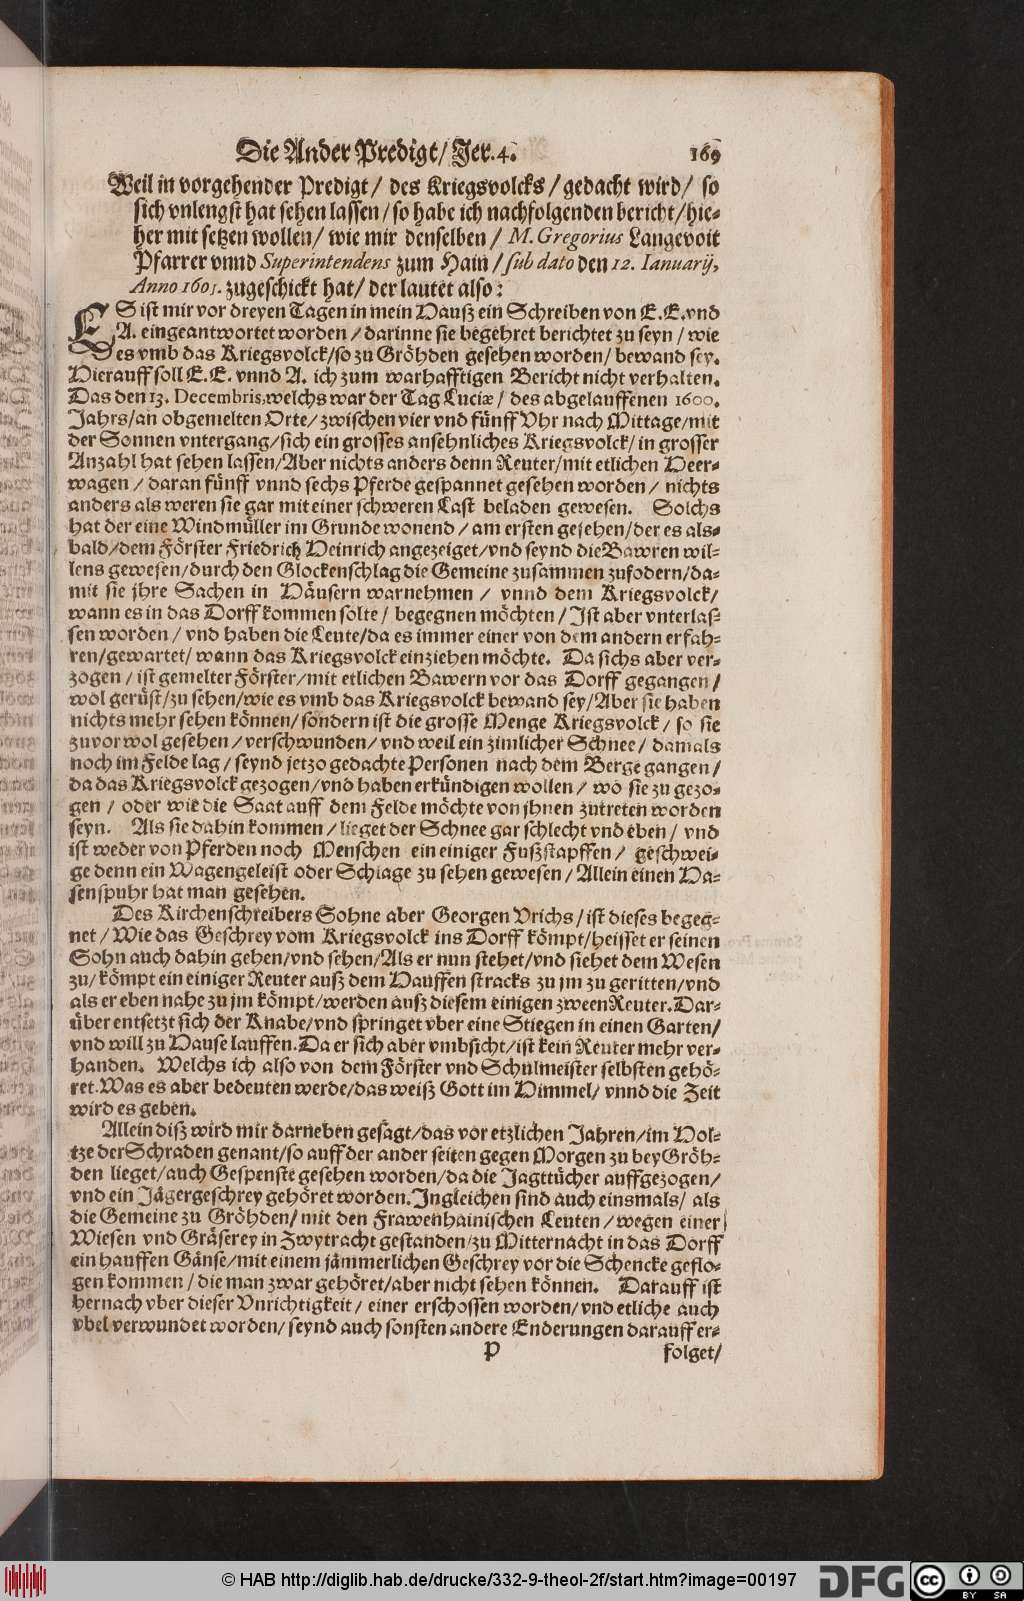 Die Ander Predigt/ Jer. 4. 169
Weil in vorgehender Predigt / des Kriegsvolcks / gedacht wird/ so
sich vnlengst hat sehen lassen / so habe ich nachfolgenden bericht / hie-
her mit setzen wollen/ wie mir denselben / M. Gregorius Langevoit
Pfarrer vnnd Superintendens zum Hain / sub dato den 12. Ianuarij,
Anno 1601. zugeschickt hat/ der lautet also:
ES ist mir vor dreyen Tagen in mein Hauß ein Schreiben von E.E. vnd
A. eingeantwortet worden / darinne sie begehret berichtet zu seyn / wie
es vmb das Kriegsvolck/so zu Gröhden gesehen worden/ bewand sey.
Hierauff soll E.E. vnnd A. ich zum warhafftigen Bericht nicht verhalten.
Das den 13. Decembris, welchs war der Tag Luciæ / des abgelauffenen 1600.
Jahrs/an obgemelten Orte/ zwischen vier vnd fünff Vhr nach Mittage/mit
der Sonnen vntergang/sich ein grosses ansehnliches Kriegsvolck/ in grosser
Anzahl hat sehen lassen/Aber nichts anders denn Reuter/mit etlichen Heer-
wagen / daran fünff vnnd sechs Pferde gespannet gesehen worden / nichts
anders als weren sie gar mit einer schweren Last beladen gewesen. Solchs
hat der eine Windmüller im Grunde wonend / am ersten gesehen/der es als-
bald/dem Förster Friedrich Heinrich angezeiget/vnd seynd die Bawren wil-
lens gewesen/durch den Glockenschlag die Gemeine zusammen zufodern/da-
mit sie jhre Sachen in Häusern warnehmen / vnnd dem Kriegsvolck/
wann es in das Dorff kommen solte / begegnen möchten / Ist aber vnterlas-
sen worden / vnd haben die Leute/da es immer einer von dem andern erfah-
ren/gewartet/ wann das Kriegsvolck einziehen möchte. Da sichs aber ver-
zogen / ist gemelter Förster/mit etlichen Bawern vor das Dorff gegangen/
wol gerüst/zu sehen/wie es vmb das Kriegsvolck bewand sey/Aber sie haben
nichts mehr sehen können/ sondern ist die grosse Menge Kriegsvolck / so sie
zuvor wol gesehen / verschwunden/ vnd weil ein zimlicher Schnee / damals
noch im Felde lag / seynd jetzo gedachte Personen nach dem Berge gangen /
da das Kriegsvolck gezogen/vnd haben erkündigen wollen / wo sie zu gezo-
gen / oder wie die Saat auff dem Felde möchte von jhnen zutreten worden
seyn. Als sie dahin kommen / lieget der Schnee gar schlecht vnd eben / vnd
ist weder von Pferden noch Menschen ein einiger Fußstapffen / geschwei-
ge denn ein Wagengeleist oder Schlage zu sehen gewesen / Allein einen Ha-
senspuhr hat man gesehen.
Des Kirchenschreibers Sohne aber Georgen Vrichs / ist dieses begeg-
net / Wie das Geschrey vom Kriegsvolck ins Dorff kömpt/heisset er seinen
Sohn auch dahin gehen/vnd sehen/Als er nun stehet/vnd siehet dem Wesen
zu/ kömpt ein einiger Reuter auß dem Hauffen stracks zu jm zu geritten/vnd
als er eben nahe zu jm kömpt/werden auß diesem einigen zween Reuter. Dar-
über entsetzt sich der Knabe/vnd springet vber eine Stiegen in einen Garten/
vnd will zu Hause lauffen. Da er sich aber vmbsicht/ist kein Reuter mehr ver-
handen. Welchs ich also von dem Förster vnd Schulmeister selbsten gehö-
ret. Was es aber bedeuten werde/das weiß Gott im Himmel/ vnnd die Zeit
wird es geben.
Allein diß wird mir darneben gesagt/das vor etzlichen Jahren/im Hol-
tze der Schraden genant/so auff der ander seiten gegen Morgen zu bey Gröh-
den lieget/auch Gespenste gesehen worden/da die Jagttücher auffgezogen/
vnd ein Jägergeschrey gehöret worden. Ingleichen sind auch einsmals/ als
die Gemeine zu Gröhden/ mit den Frawenhainischen Leuten / wegen einer
Wiesen vnd Gräserey in Zwytracht gestanden/zu Mitternacht in das Dorff
ein hauffen Gänse/mit einem jämmerlichen Geschrey vor die Schencke geflo-
gen kommen / die man zwar gehöret/aber nicht sehen können. Darauff ist
hernach vber dieser Vnrichtigkeit / einer erschossen worden/ vnd etliche auch
vbel verwundet worden/ seynd auch sonsten andere Enderungen darauff er-
P folget/
© HAB http://diglib.hab.de/drucke/332-9-theol-2f/start.htm?image=00197
DFG cc BY SA